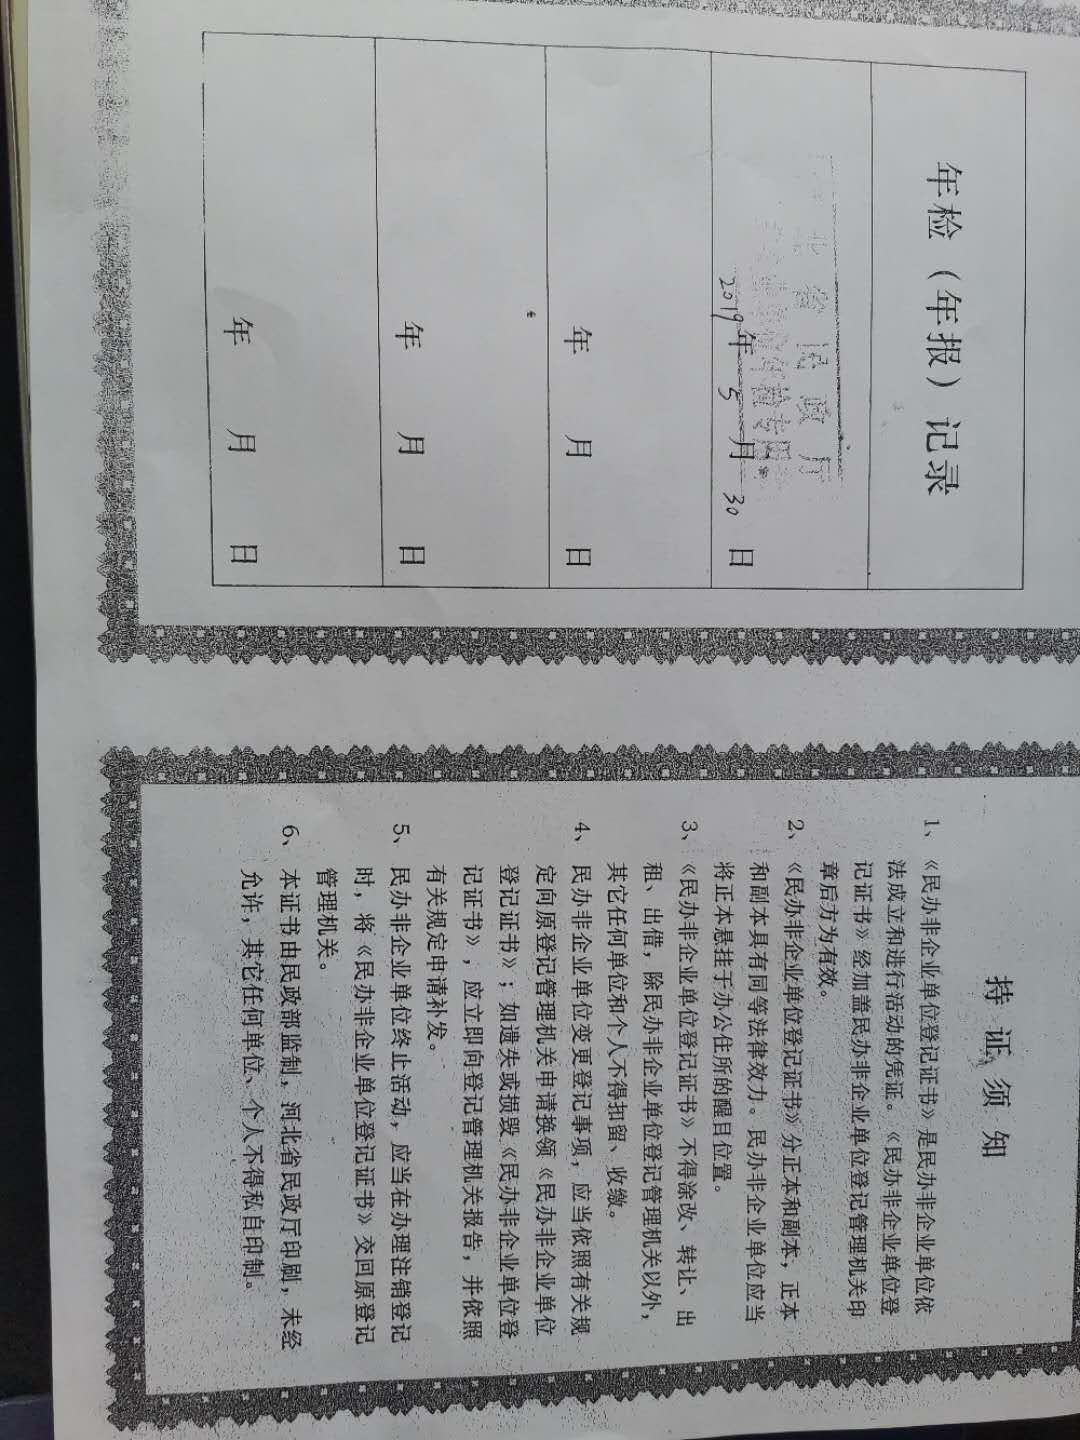 年检（年报）记录
省民政厅
年检专用
2019年5月30日
年 月 日
年 月 日
年 月 日
持证须知
1、《民办非企业单位登记证书》是民办非企业单位依
法成立和进行活动的凭证。《民办非企业单位登
记证书》经加盖民办非企业单位登记管理机关印
章后方为有效。
2、《民办非企业单位登记证书》分正本和副本，正本
和副本具有同等法律效力。民办非企业单位应当
将正本悬挂于办公住所的醒目位置。
3、《民办非企业单位登记证书》不得涂改、转让、出
租、出借，除民办非企业单位登记管理机关以外，
其它任何单位和个人不得扣留、收缴。
4、民办非企业单位变更登记事项，应当依照有关规
定向原登记管理机关申请换领《民办非企业单位
登记证书》；如遗失或损毁《民办非企业单位登
记证书》，应立即向登记管理机关报告，并依照
有关规定申请补发。
5、民办非企业单位终止活动，应当在办理注销登记
时，将《民办非企业单位登记证书》交回原登记
管理机关。
6、本证书由民政部监制，河北省民政厅印刷，未经
允许，其它任何单位、个人不得私自印制。